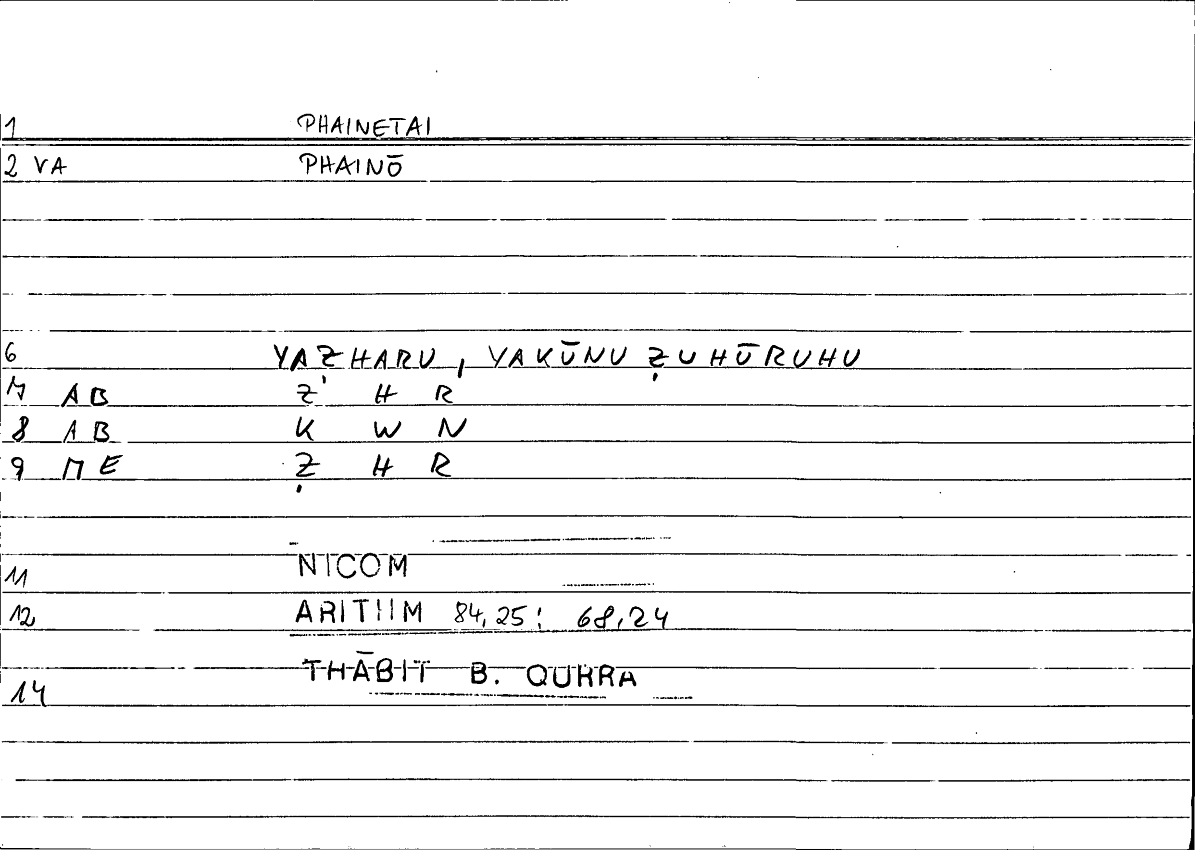 1 PHAINETAI
2 VA PHAINŌ
6 YAẒHARU, YAKŪNU ẒUHŪRUHU
7 AB Ẓ H R
8 AB K W N
9 ME Ẓ H R
11 NICOM
12 ARITHM 84,25: 68,24
THĀBIT B. QURRA
14